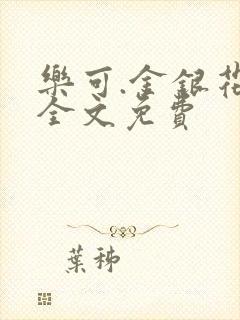 樂可.金銀花
全文免費
葉秭